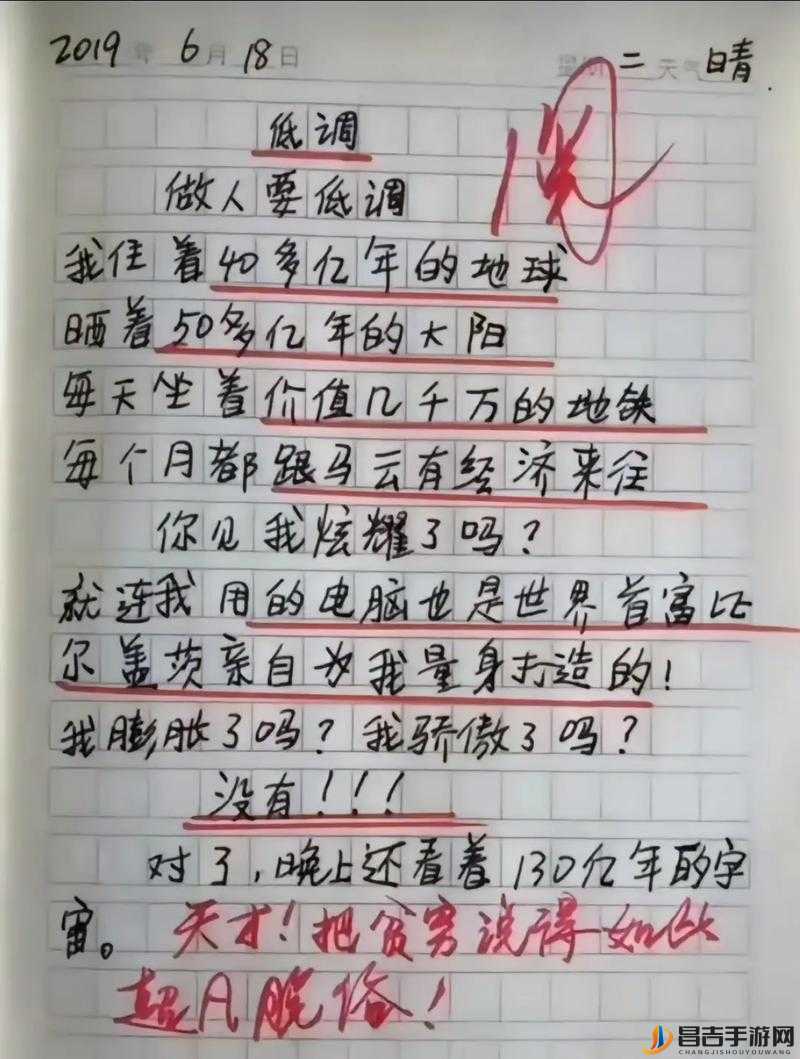 2019年6月18日 星期二 天气晴
低调
做人要低调
我住着40多亿年的地球
晒着50多亿年的太阳
每天坐着价值几千万的地铁
每个月都跟马云有经济来往
你见我炫耀了吗？
就连我用的电脑也是世界首富比
尔盖茨亲自为我量身打造的！
我膨胀了吗？我骄傲了吗？
没有！！！
对了，晚上还看着130亿年的宇
宙。天才！把贫穷说得如此
超凡脱俗！
昌吉手游网
CHANGJISHOUYOUWANG